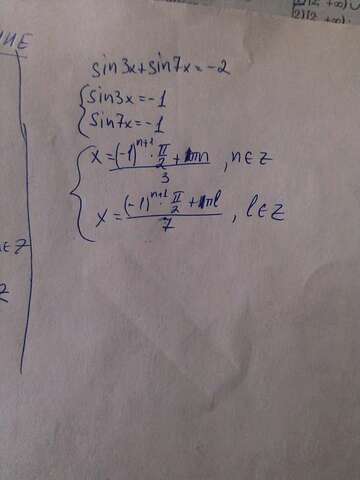 sin3x+sin7x=-2
{ sin3x=-1
sin7x=-1
{ x=((-1)^{n+1}·π/2+πn)/3, n∈Z
x=((-1)^{n+1}·π/2+πl)/7, l∈Z